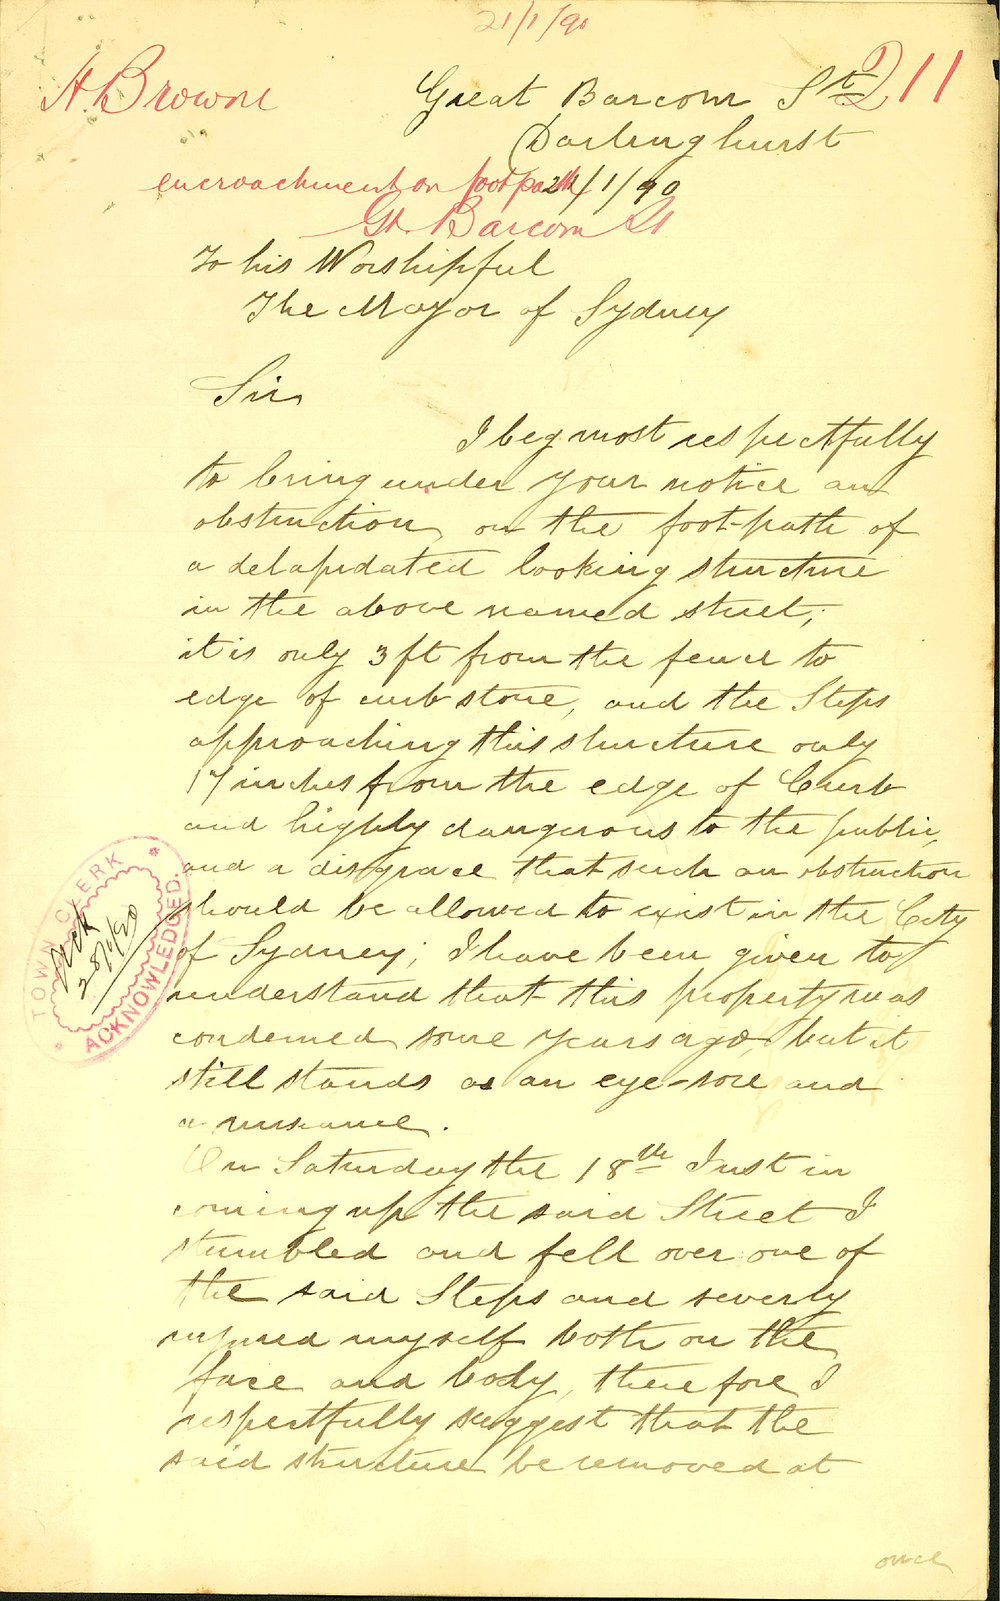 21/1/90
H. Browne
211
Great Barcom St
Darlinghurst
encroachment on footpath 21/1/90
Gt. Barcom St
To his Worshipful
The Mayor of Sydney
Sir
I beg most respectfully
to bring under your notice an
obstruction on the foot-path of
a delapidated looking structure
in the above named street;
it is only 3 ft from the fence to
edge of curb stone, and the Steps
approaching this structure only
17 inches from the edge of Curb
and highly dangerous to the public,
and a disgrace that such an obstruction
should be allowed to exist in the City
of Sydney; I have been given to
understand that this property was
condemed some years ago, but it
still stands as an eye-sore and
a nusance.
On Saturday the 18th Inst in
coming up the said Street I
stumbled and fell over one of
the said Steps and severly
injured myself both on the
face and body, therefore I
respectfully suggest that the
said structure be removed at
once
TOWN CLERK
Ack
ACKNOWLEDGED.